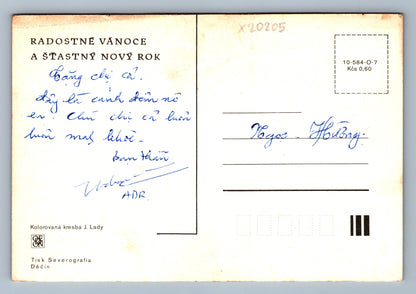 X20205
RADOSTNÉ VÁNOCE
A ŠŤASTNÝ NOVÝ ROK
Tặng chị cả.
đây là cảnh đêm nô
en. Chú chị cả luôn
luôn mạnh khoẻ.
bạn thân
ADR
10-584-O-7
Kčs 0,60
Ngọc Hường.
Kolorovaná kresba J. Lady
Tisk Severografia
Děčín